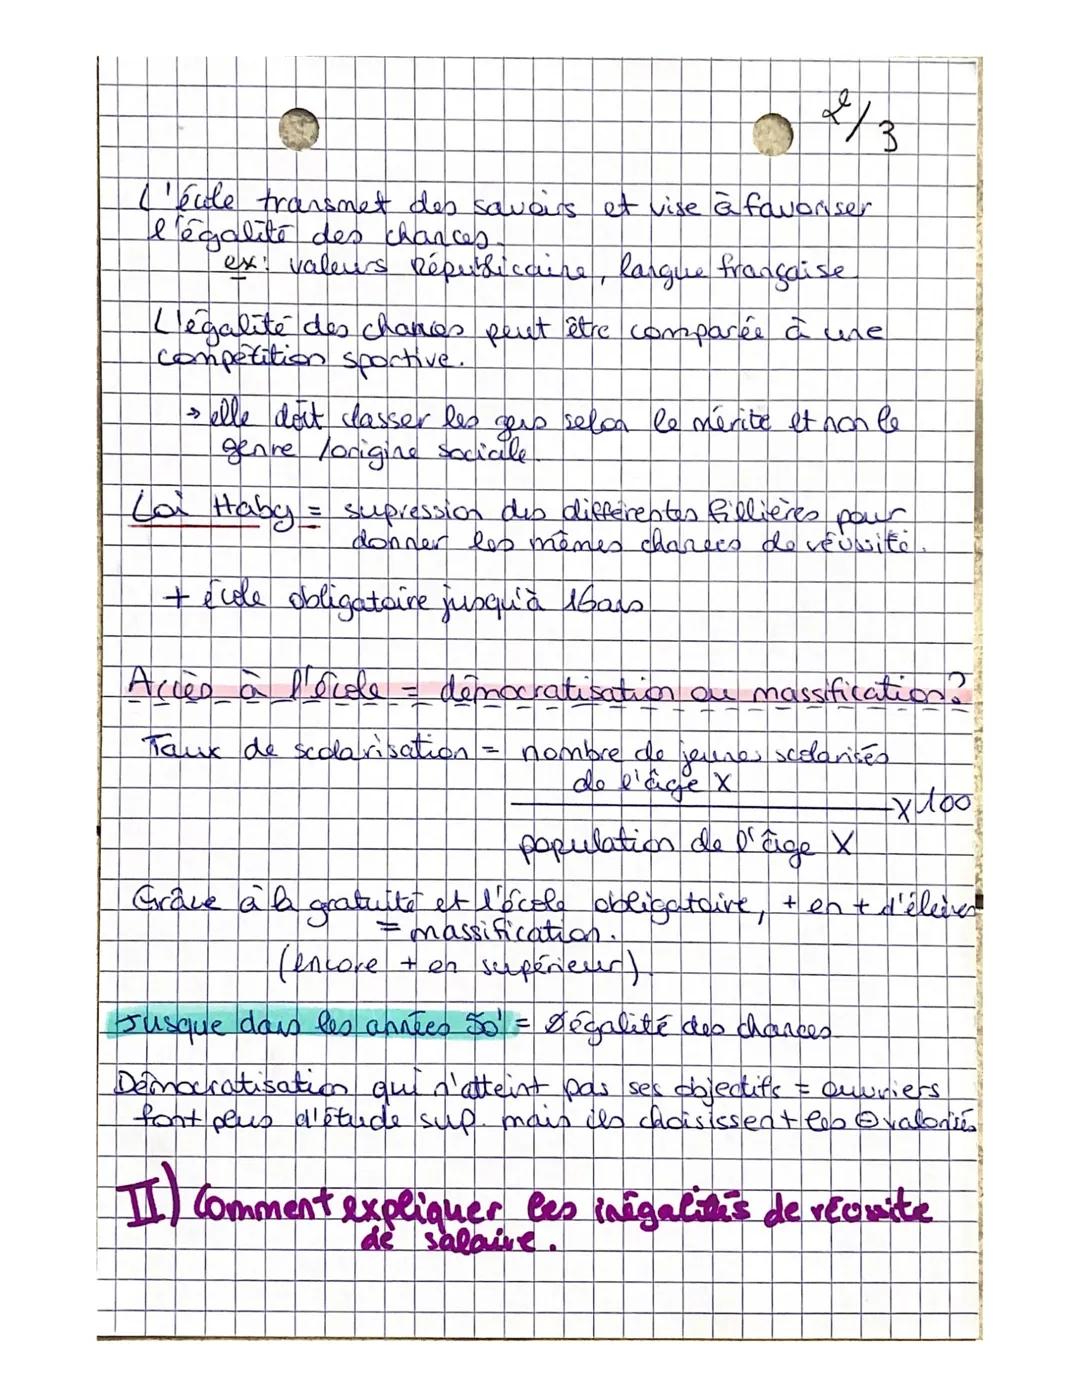 2/3
L'école transmet des savoirs et vise à favoriser
l'égalité des chances.
ex: valeurs Républicaine, langue française
L'égalité des chances peut être comparée à une
compétition sportive.
→ elle doit classer les gens selon le mérite et non le
genre /origine sociale.
Loi Haby = supression des différentes fillières pour
donner les mêmes chances de réussite.
+ école obligatoire jusqu'à 16ans
Accès à l'école = démocratisation ou massification?
Taux de scolarisation = nombre de jeunes scolarisés
de l'âge X
x100
population de l'âge X
Grâce à la gratuité et l'école obligatoire, + en + d'élèves
= massification.
(encore + en supérieur)
Jusque dans les années 50' = Ø égalité des chances
Démocratisation qui n'atteint pas ses objectifs = ouvriers
font plus d'étude sup. mais ils choisissent les ⊖ valorisés
II) Comment expliquer les inégalités de réussite
de salaire.